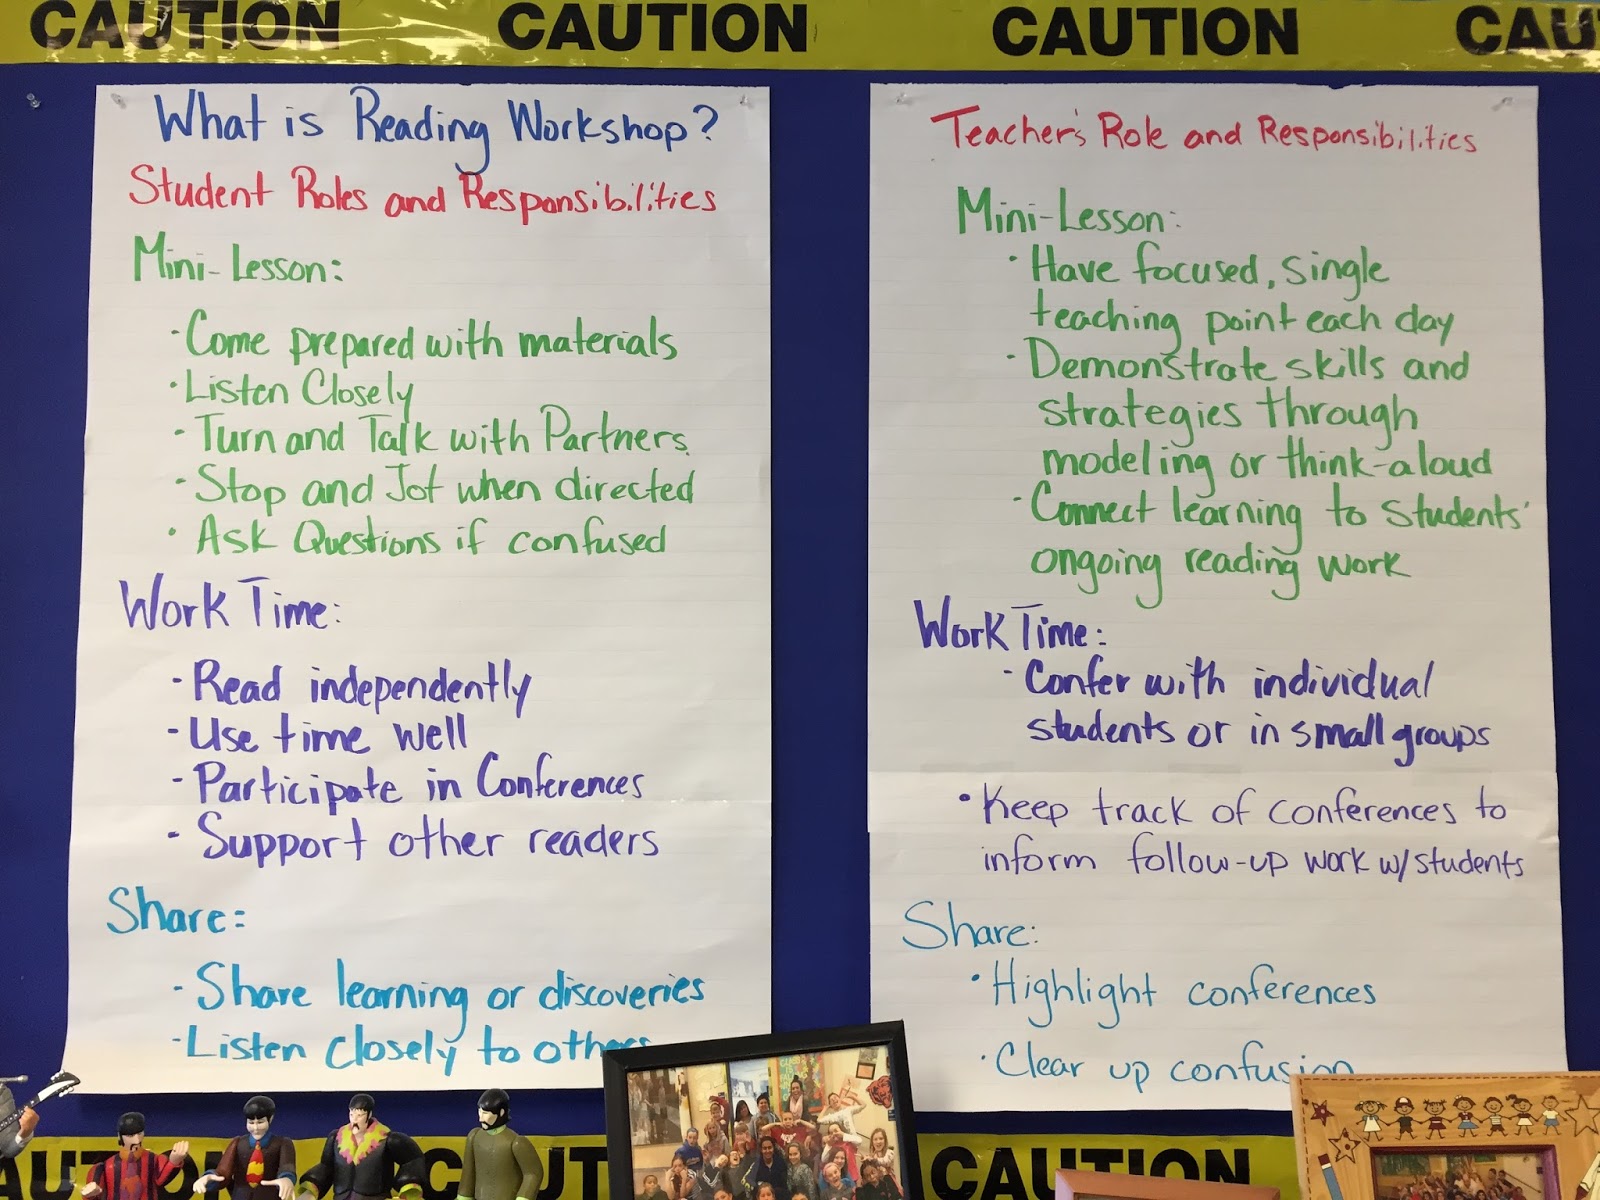 CAUTION CAUTION CAUTION CAU
What is Reading Workshop?
Student Roles and Responsibilities
Mini-Lesson:
· Come prepared with materials
· Listen Closely
· Turn and Talk with Partners
· Stop and Jot when directed
· Ask Questions if confused
Work Time:
- Read independently
- Use time well
- Participate in Conferences
- Support other readers
Share:
- Share learning or discoveries
- Listen closely to others
Teacher's Role and Responsibilities
Mini-Lesson:
· Have focused, single
teaching point each day
· Demonstrate skills and
strategies through
modeling or think-aloud
· Connect learning to students'
ongoing reading work
Work Time:
· Confer with individual
students or in small groups
· Keep track of conferences to
inform follow-up work w/students
Share:
· Highlight conferences
· Clear up confusion
AUTION CAUT CAUTION